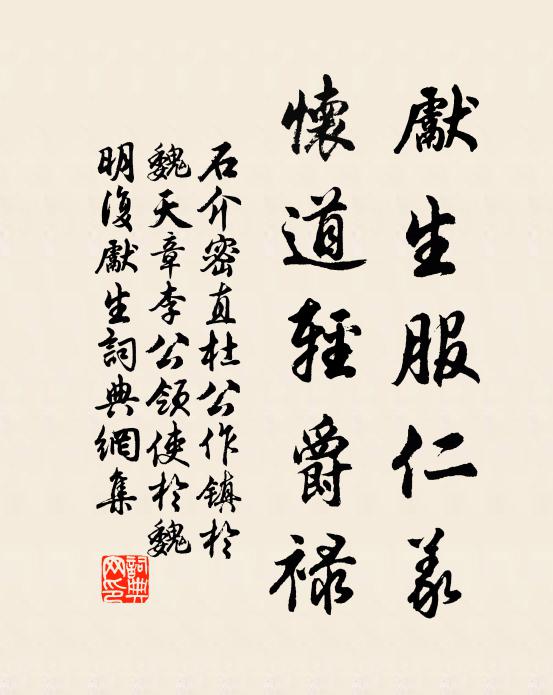 獻生服仁義
懷道輕爵祿
石介密直杜公作鎮於
魏天章李公領使於魏
明復獻生詞典網集
詞典網印